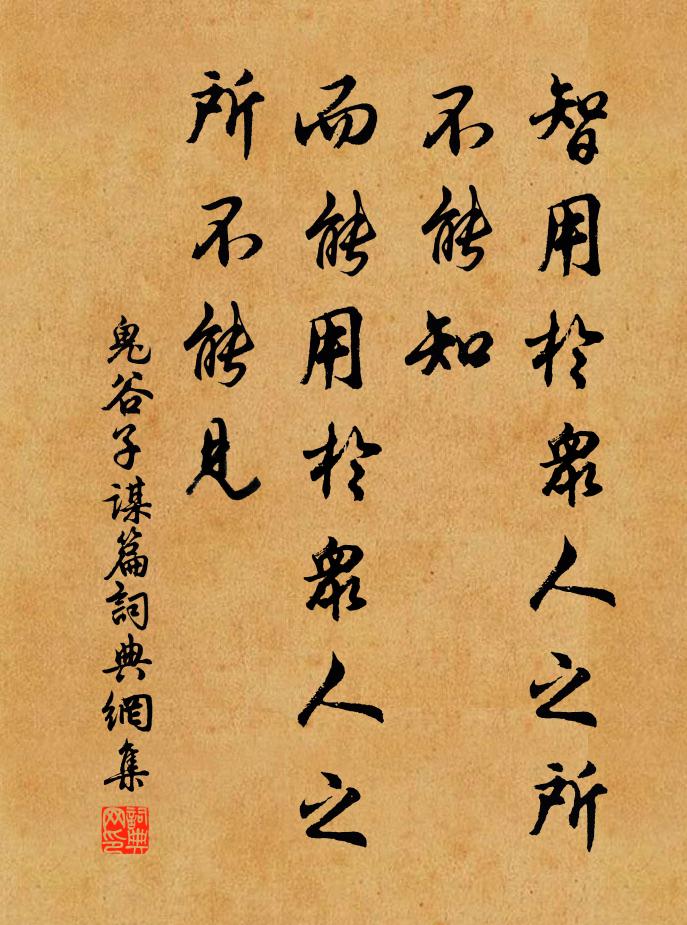 智用於眾人之所
不能知
而能用於眾人之
所不能見
鬼谷子謀篇詞典網集
詞典网印